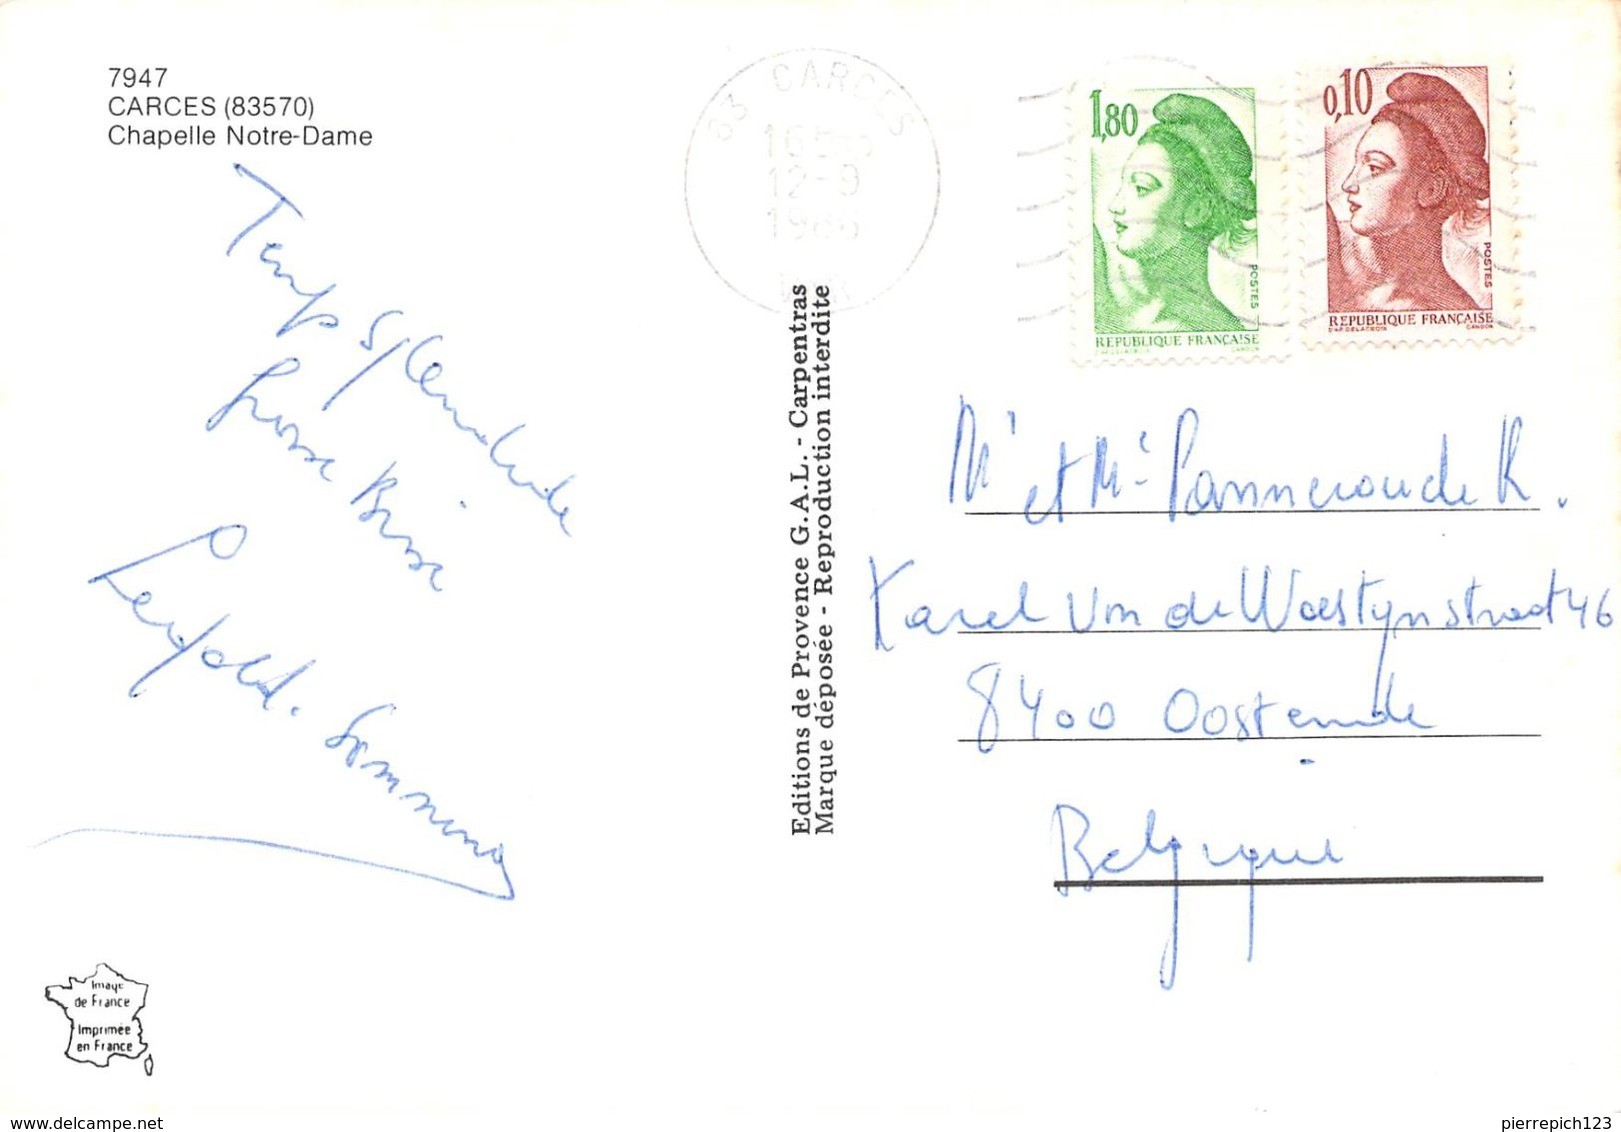 7947
CARCES (83570)
Chapelle Notre-Dame
Temps splendide
Grosse Bise
Léopold.
83 CARCES
12-9
1986
1,80
POSTES
REPUBLIQUE FRANÇAISE
D'AP. DELACROIX GANDON
0,10
POSTES
REPUBLIQUE FRANÇAISE
D'AP. DELACROIX GANDON
Editions de Provence G.A.L. - Carpentras
Marque déposée - Reproduction interdite
Mr et Me
Karel Van de Woestynstraat 46
8400 Oostende
Belgique
Image
de France
Imprimée
en France
delcampe.net
pierrepich123